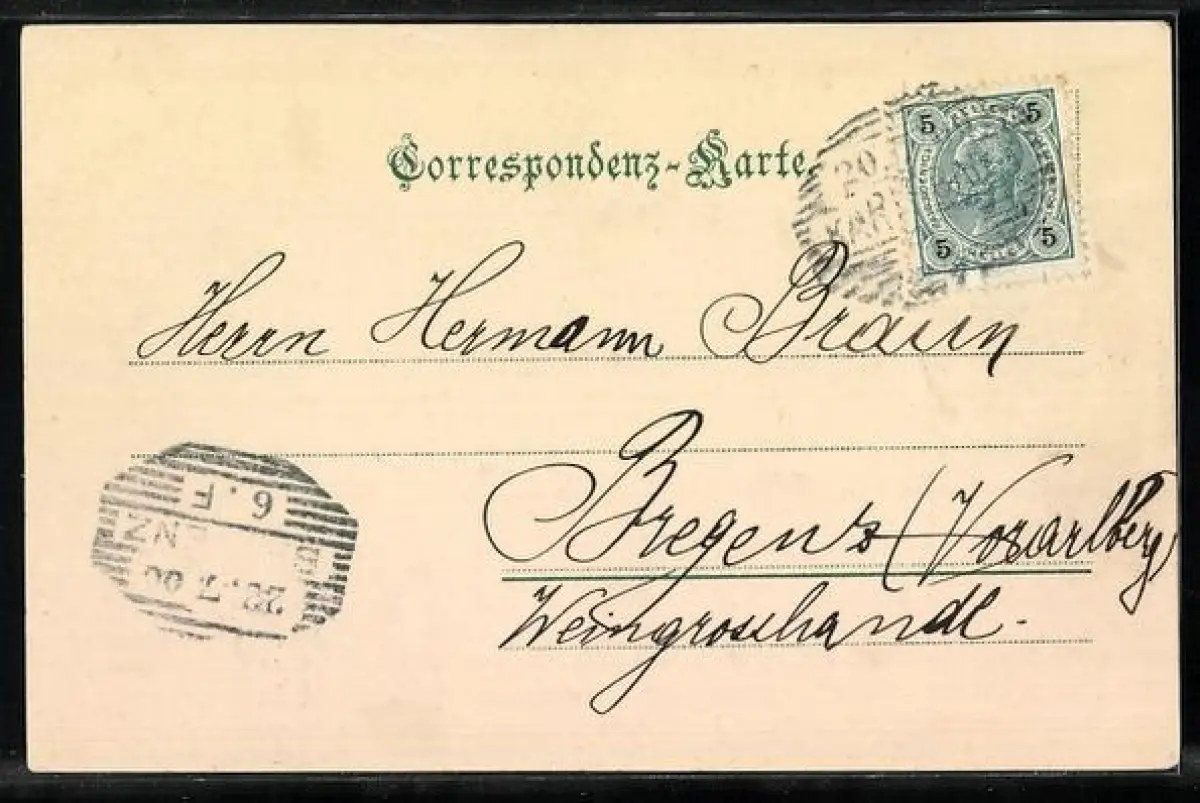 Correspondenz-Karte.
5 5
5 5
20.
KAR
Herrn Hermann Braun
Bregenz (Vorarlberg)
Weingrosshandl.
6.F
ENZ
22.7.00